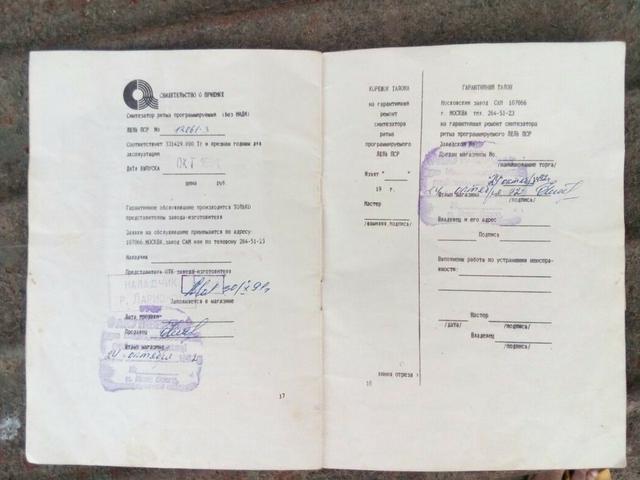 СВИДЕТЕЛЬСТВО О ПРИЕМКЕ
Синтезатор ритма программируемый (без МИДИ)
ЛЕЛЬ ПСР №
Соответствует 331429.000 Тг и признан годным для
эксплуатации
ДАТА ВЫПУСКА ОКТ
цена руб.
Гарантийное обслуживание производится ТОЛЬКО
представителем завода-изготовителя
Заявки на обслуживание принимаются по адресу:
107066.МОСКВА,завод САМ или по телефону 264-51-23
Наладчик
Представитель ОТК завода-изготовителя
НАЛАДЧИК
Заполняется в магазине
Дата продажи
Продавец
Штамп магазина
24 октября
17
КОРЕШОК ТАЛОНА
на гарантийный
ремонт
синтезатора
ритма
программируемого
ЛЕЛЬ ПСР
Изъят " "
19 г.
Мастер
/фамилия,подпись/
линия отреза
18
ГАРАНТИЙНЫЙ ТАЛОН
Московский завод САМ 107066
г. МОСКВА тел. 264-51-23
на гарантийный ремонт синтезатора
ритма программируемого ЛЕЛЬ ПСР
Заводской №
Продан магазином №
/наименование торга/
24 октября
Штамп магазина
/подпись/
Владелец и его адрес
Подпись
Выполнены работы по устранению неиспра-
вностей:
Мастер
/дата/ /подпись/
Владелец
/подпись/